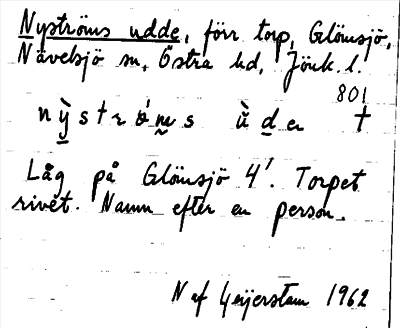 Nyströms udde, förr torp, Glömsjö,
Nävelsjö sn, Östra hd, Jönk. l.
801
nỳströ́ms ùde †
Låg på Glömsjö 4'. Torpet
rivet. Namn efter en person.
N af Geijerstam 1962